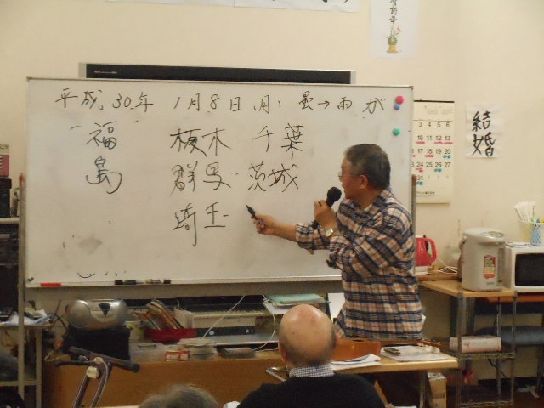 平成30年 1月8日(月) 曇→雨が
福島
栃木 千葉
群馬 茨城
埼玉
結婚